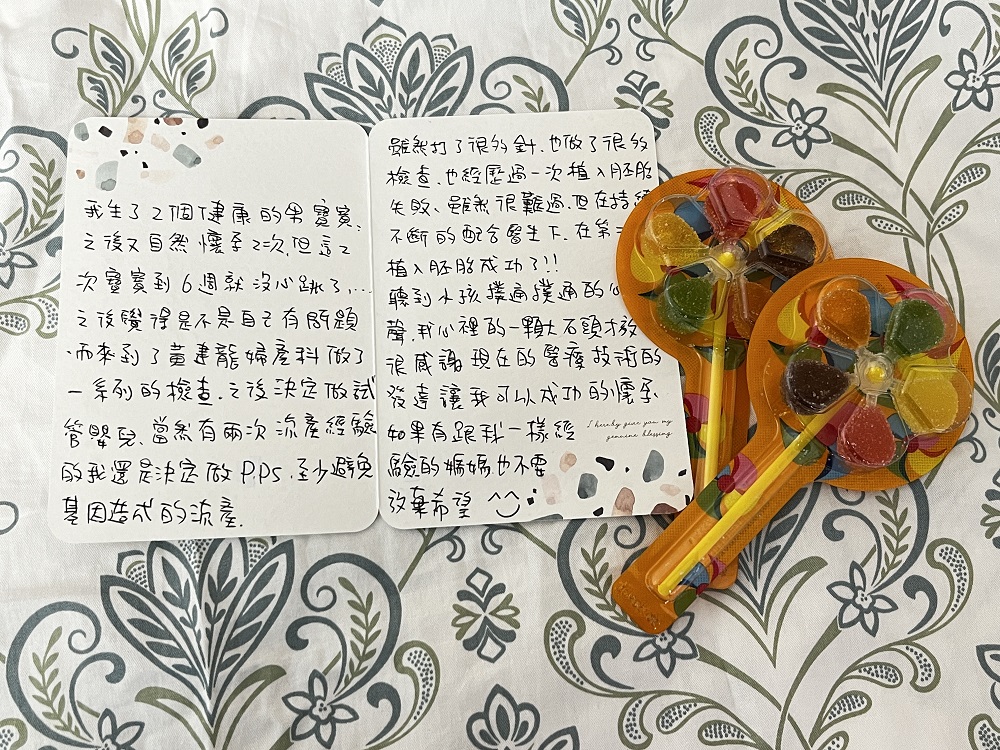 我生了2個健康的男寶寶、
之後又自然懷孕2次,但這2
次寶寶到6週就沒心跳了,...
之後覺得是不是自己有問題
而來到了黃建龍婦產科做了
一系列的檢查.之後決定做試
管嬰兒、當然有兩次流產經驗
的我還是決定做P.P.D5.至少避免
基因造成的流產.
雖然打了很多針.也做了很多
檢查.也經歷過一次植入胚胎
失敗、雖然很難過.但在持續
不斷的配合醫生下.在第二
植入胚胎成功了!!
聽到小孩撲通撲通的心
聲.我心裡的一顆大石頭才放
很感謝現在的醫療技術的
發達讓我可以成功的懷孕
如果有跟我一樣經
驗的媽媽也不要
放棄希望 ^^
I hereby give you my
genuine blessing